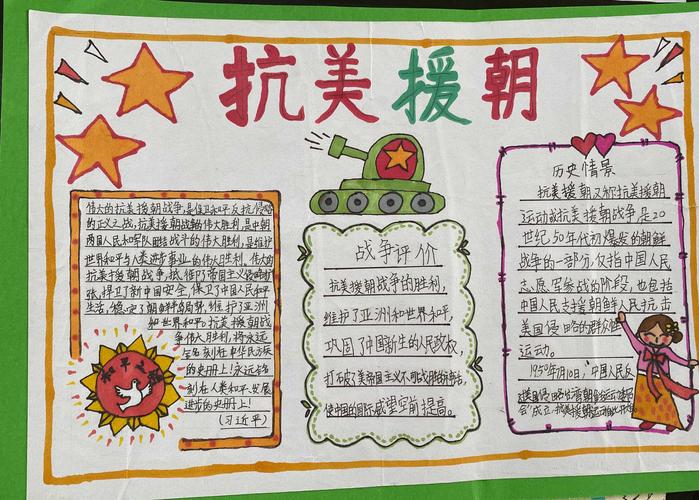 抗美援朝
伟大的抗美援朝战争,是保卫和平反抗侵略
的正义之战,抗美援朝战争的伟大胜利,是中朝
两国人民和军队团结战斗的伟大胜利,是维护
世界和平与人类进步事业的伟大胜利。伟大的
抗美援朝战争,抵御了帝国主义侵略扩
张,捍卫了新中国安全,保卫了中国人民和平
生活,稳定了朝鲜半岛局势,维护了亚洲
和世界和平。抗美援朝战
争伟大胜利,将永远
铭刻在中华民族
的史册上!永远铭
刻在人类和平、发展
进步的史册上!
(习近平)
和平之
战争评价
抗美援朝战争的胜利,
维护了亚洲和世界和平,
巩固了中国新生的人民政权,
打破了美帝国主义不可战胜的神话,
使中国的国际威望空前提高。
历史情景
抗美援朝又称抗美援朝
运动或抗美援朝战争,是20
世纪50年代初爆发的朝鲜
战争的一部分,仅指中国人民
志愿军参战的阶段,也包括
中国人民支援朝鲜人民抗击
美国侵略的群众性
运动。
1950年7月10日,"中国人民反
成立,抗美援朝运动